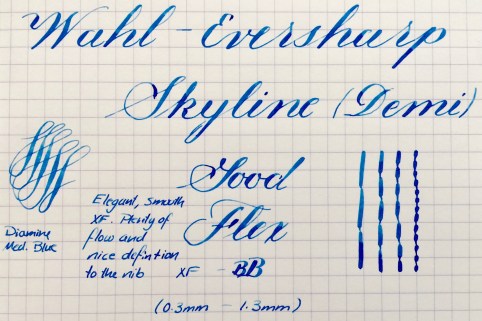 Wahl-Eversharp
Skyline (Demi)
Good
Flex
Elegant, smooth
XF. Plenty of
flow and
nice definition
to the nib
XF - BB
Diamine
Med. Blue
(0.3mm - 1.3mm)